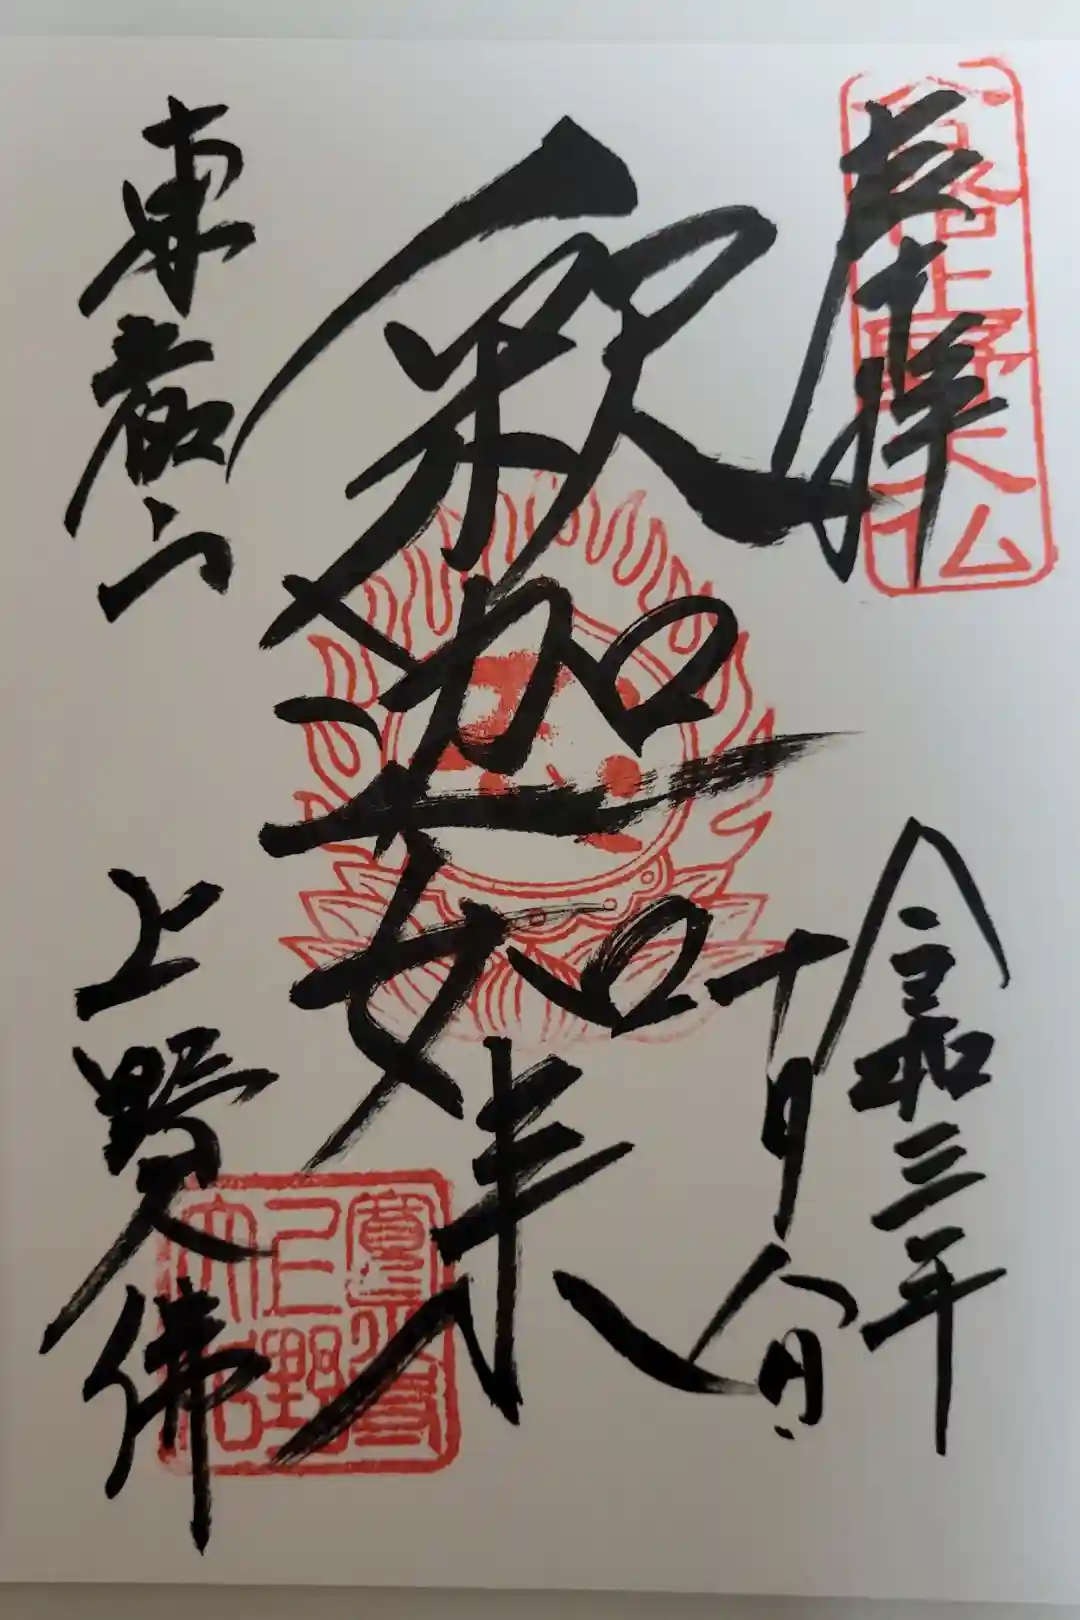 奉拝
令和三年
十月八日
釈迦如来
東叡山
上野大佛